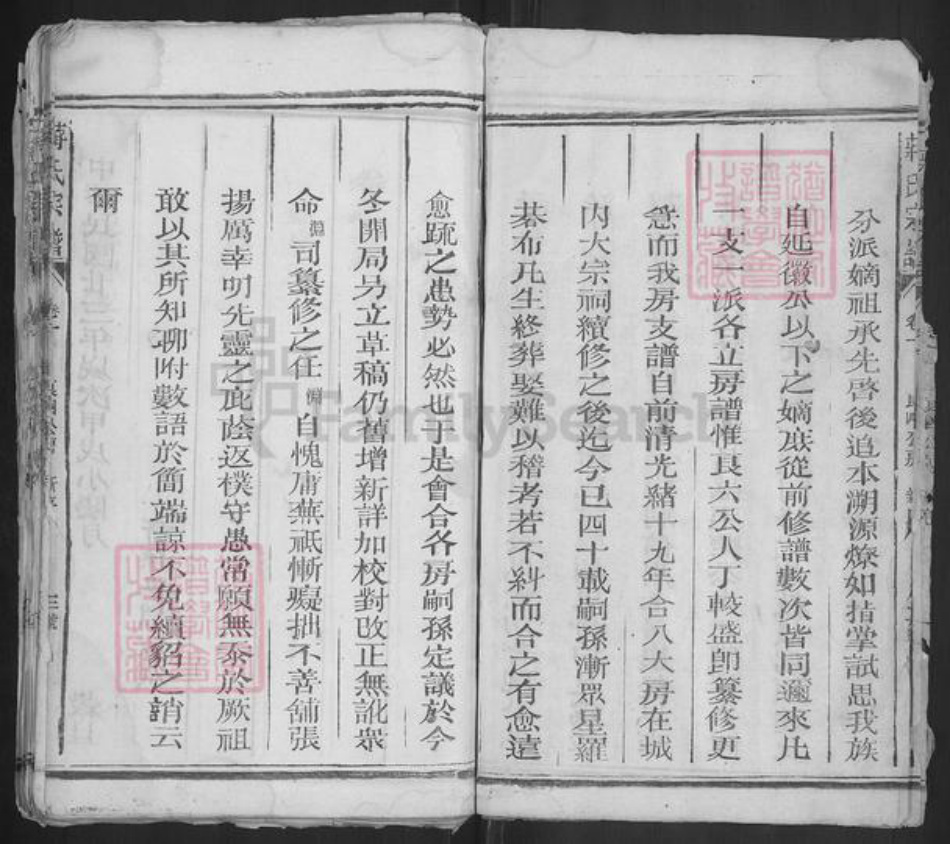 分派嫡祖承先啓後追本溯源燎如指掌試思我族
自延徽公以下之嫡庶從前修譜數次皆同邇來凡
一支一派各立房譜惟良六公人丁較盛即纂修更
急而我房支譜自前清光緒十九年合八大房在城
內大宗祠續修之後迄今已四十載嗣孫漸眾星羅
碁布凡生終葬娶難以稽考若不糾而合之有愈遠
愈疏之患勢必然也于是會合各房嗣孫定議於今
冬開局另立草稿仍舊增新詳加校對改正無訛衆
命 司纂修之任 自愧庸蕪祇慚癡拙不善舖張
揚厲幸叨先靈之庇蔭返樸守愚常願無忝於厥祖
敢以其所知聊附數語於簡端諒不免續貂之誚云
爾
蔣氏宗譜
卷一
三號
FamilySearch